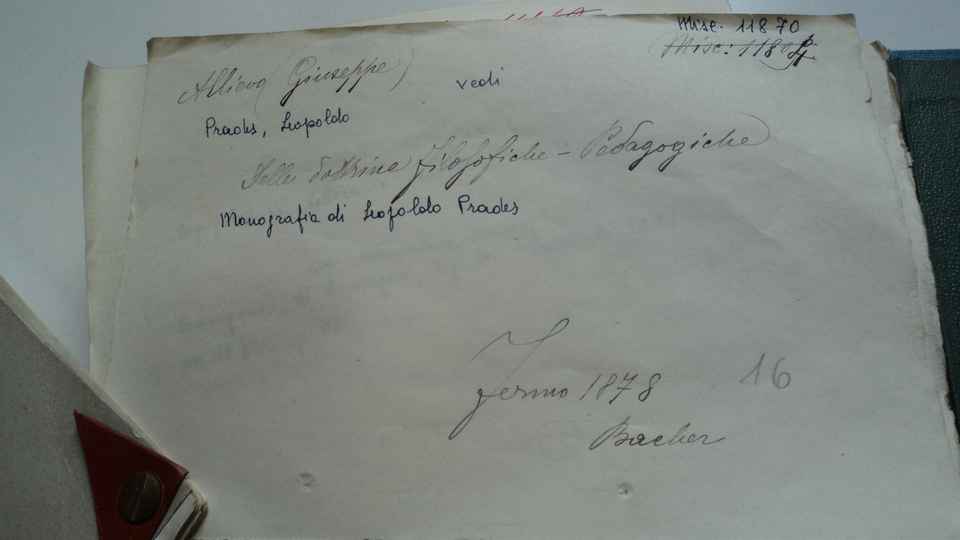 Misc. 11870
(Misc: 1180
Allievo (Giuseppe)
vedi
Prades, Leopoldo
Delle dottrine filosofiche - Pedagogiche
Monografia di Leopoldo Prades
fermo 1878
16
Bacher